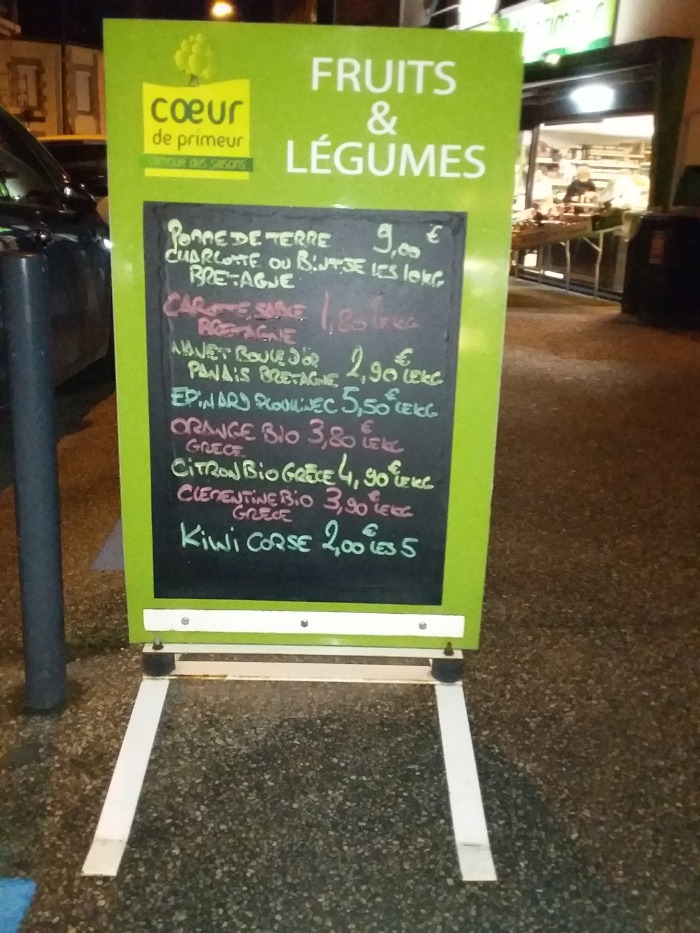 cœur
de primeur
l'amour des saisons
FRUITS
&
LÉGUMES
POMME DE TERRE 9,00 €
CHARLOTTE OU BINTJE LES 10KG
BRETAGNE
CAROTTE SABLE 1,80 € LE KG
BRETAGNE
NAVET BOULE D'OR
PANAIS BRETAGNE 2,90 € LE KG
EPINARD PLOUHINEC 5,50 € LE KG
ORANGE BIO 3,80 € LE KG
GRECE
CITRON BIO GRÈCE 4,90 € LE KG
CLEMENTINE BIO 3,90 € LE KG
GRECE
KIWI CORSE 2,00 € LES 5